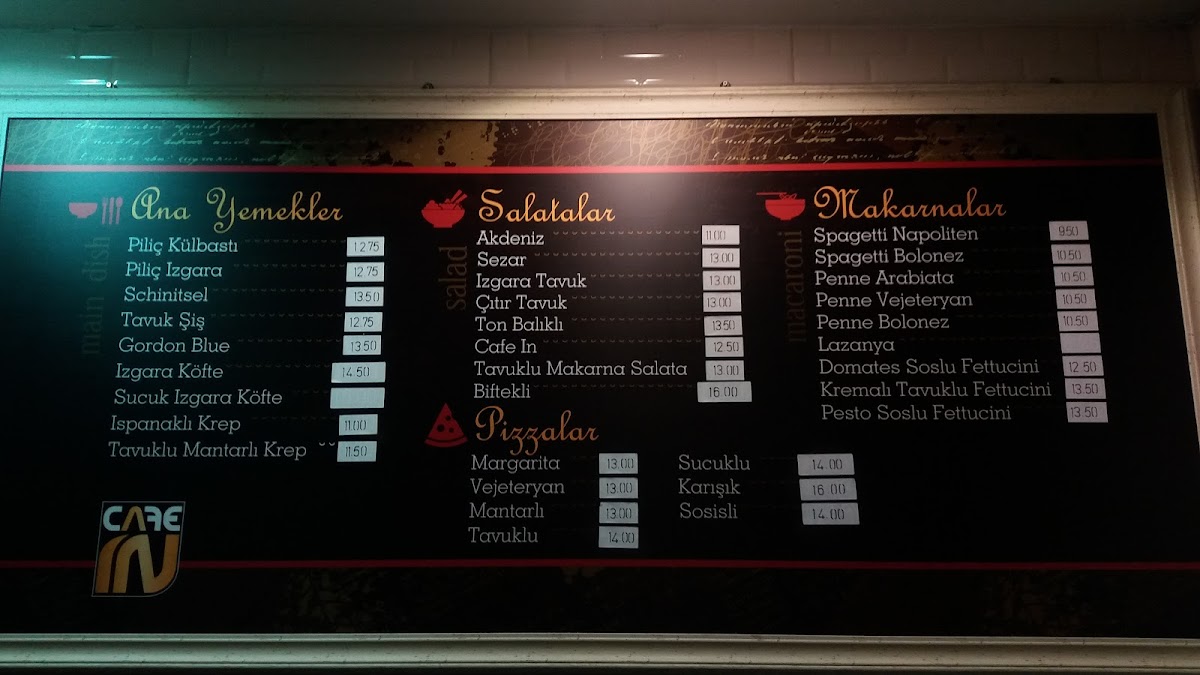 main dish
Ana Yemekler
Piliç Külbastı 12.75
Piliç Izgara 12.75
Schinitsel 13.50
Tavuk Şiş 12.75
Gordon Blue 13.50
Izgara Köfte 14.50
Sucuk Izgara Köfte
Ispanaklı Krep 11.00
Tavuklu Mantarlı Krep 11.50
salad
Salatalar
Akdeniz 11.00
Sezar 13.00
Izgara Tavuk 13.00
Çıtır Tavuk 13.00
Ton Balıklı 13.50
Cafe In 12.50
Tavuklu Makarna Salata 13.00
Biftekli 16.00
Pizzalar
Margarita 13.00
Vejeteryan 13.00
Mantarlı 13.00
Tavuklu 14.00
Sucuklu 14.00
Karışık 16.00
Sosisli 14.00
macaroni
Makarnalar
Spagetti Napoliten 9.50
Spagetti Bolonez 10.50
Penne Arabiata 10.50
Penne Vejeteryan 10.50
Penne Bolonez 10.50
Lazanya
Domates Soslu Fettucini 12.50
Kremalı Tavuklu Fettucini 13.50
Pesto Soslu Fettucini 13.50
CAFE
IN